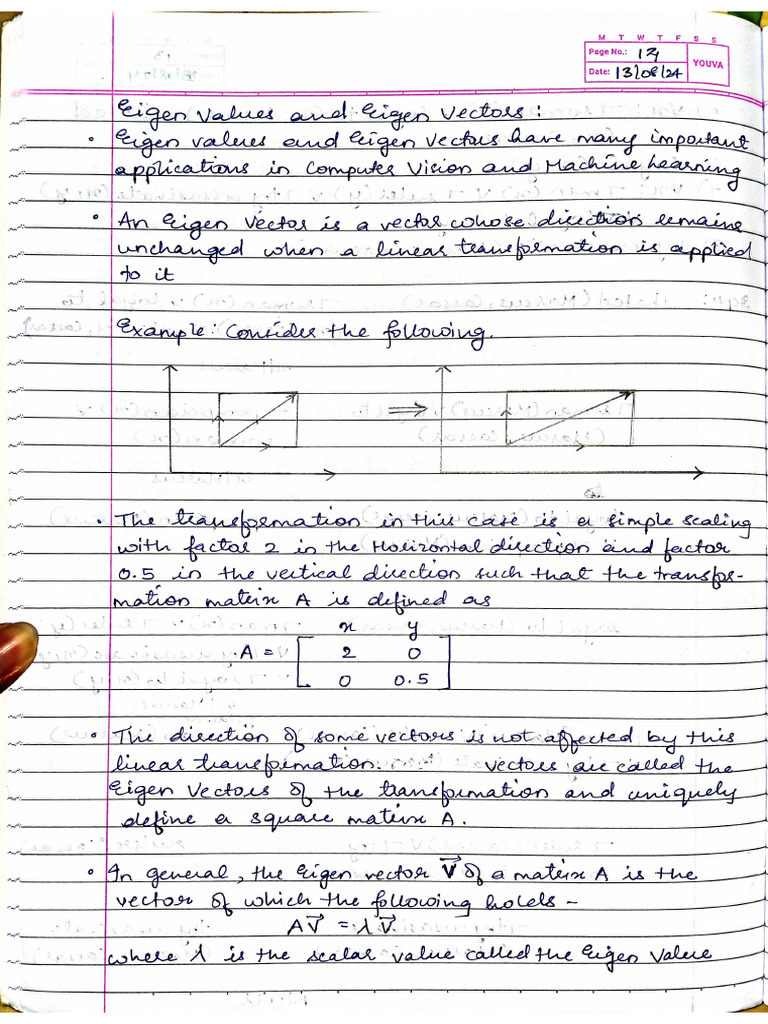 M T W T F S S
Page No.: 13
Date: 13/08/24
YOUVA
Eigen Values and Eigen Vectors:
• Eigen values and Eigen Vectors have many important
applications in Computer Vision and Machine Learning
• An Eigen Vector is a vector whose direction remains
unchanged when a linear transformation is applied
to it
Example: Consider the following.
• The transformation in this case is a simple scaling
with factor 2 in the Horizontal direction and factor
0.5 in the vertical direction such that the transfor-
mation matrix A is defined as
x y
A = [ 2 0
0 0.5 ]
• The direction of some vectors is not affected by this
linear transformation. vectors are called the
Eigen Vectors of the transformation and uniquely
define a square matrix A.
• In general, the Eigen vector V⃗ of a matrix A is the
vector of which the following holds -
AV⃗ = λV⃗.
where λ is the scalar value called the Eigen Value